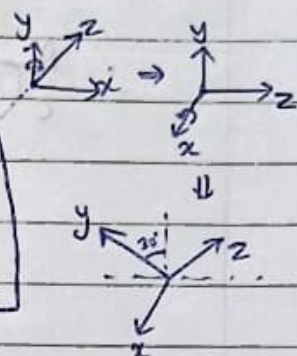 y z y
x ⇒ z
x
⇓
y 30° z
x